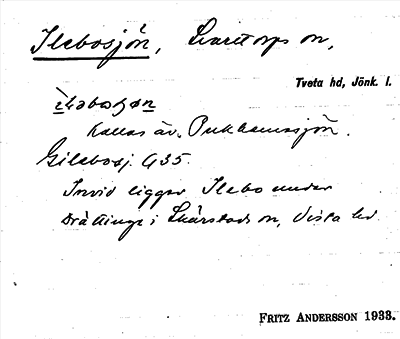 Ilebosjön, Svarttorps sn,
Tveta hd, Jönk. l.
ìləbosʃøn
kallas äv. Bukhamrasjön.
Gilebosj. G35.
Invid ligger Ilebo under
Drättinge i Skärstads sn, Vista hd
FRITZ ANDERSSON 1933.